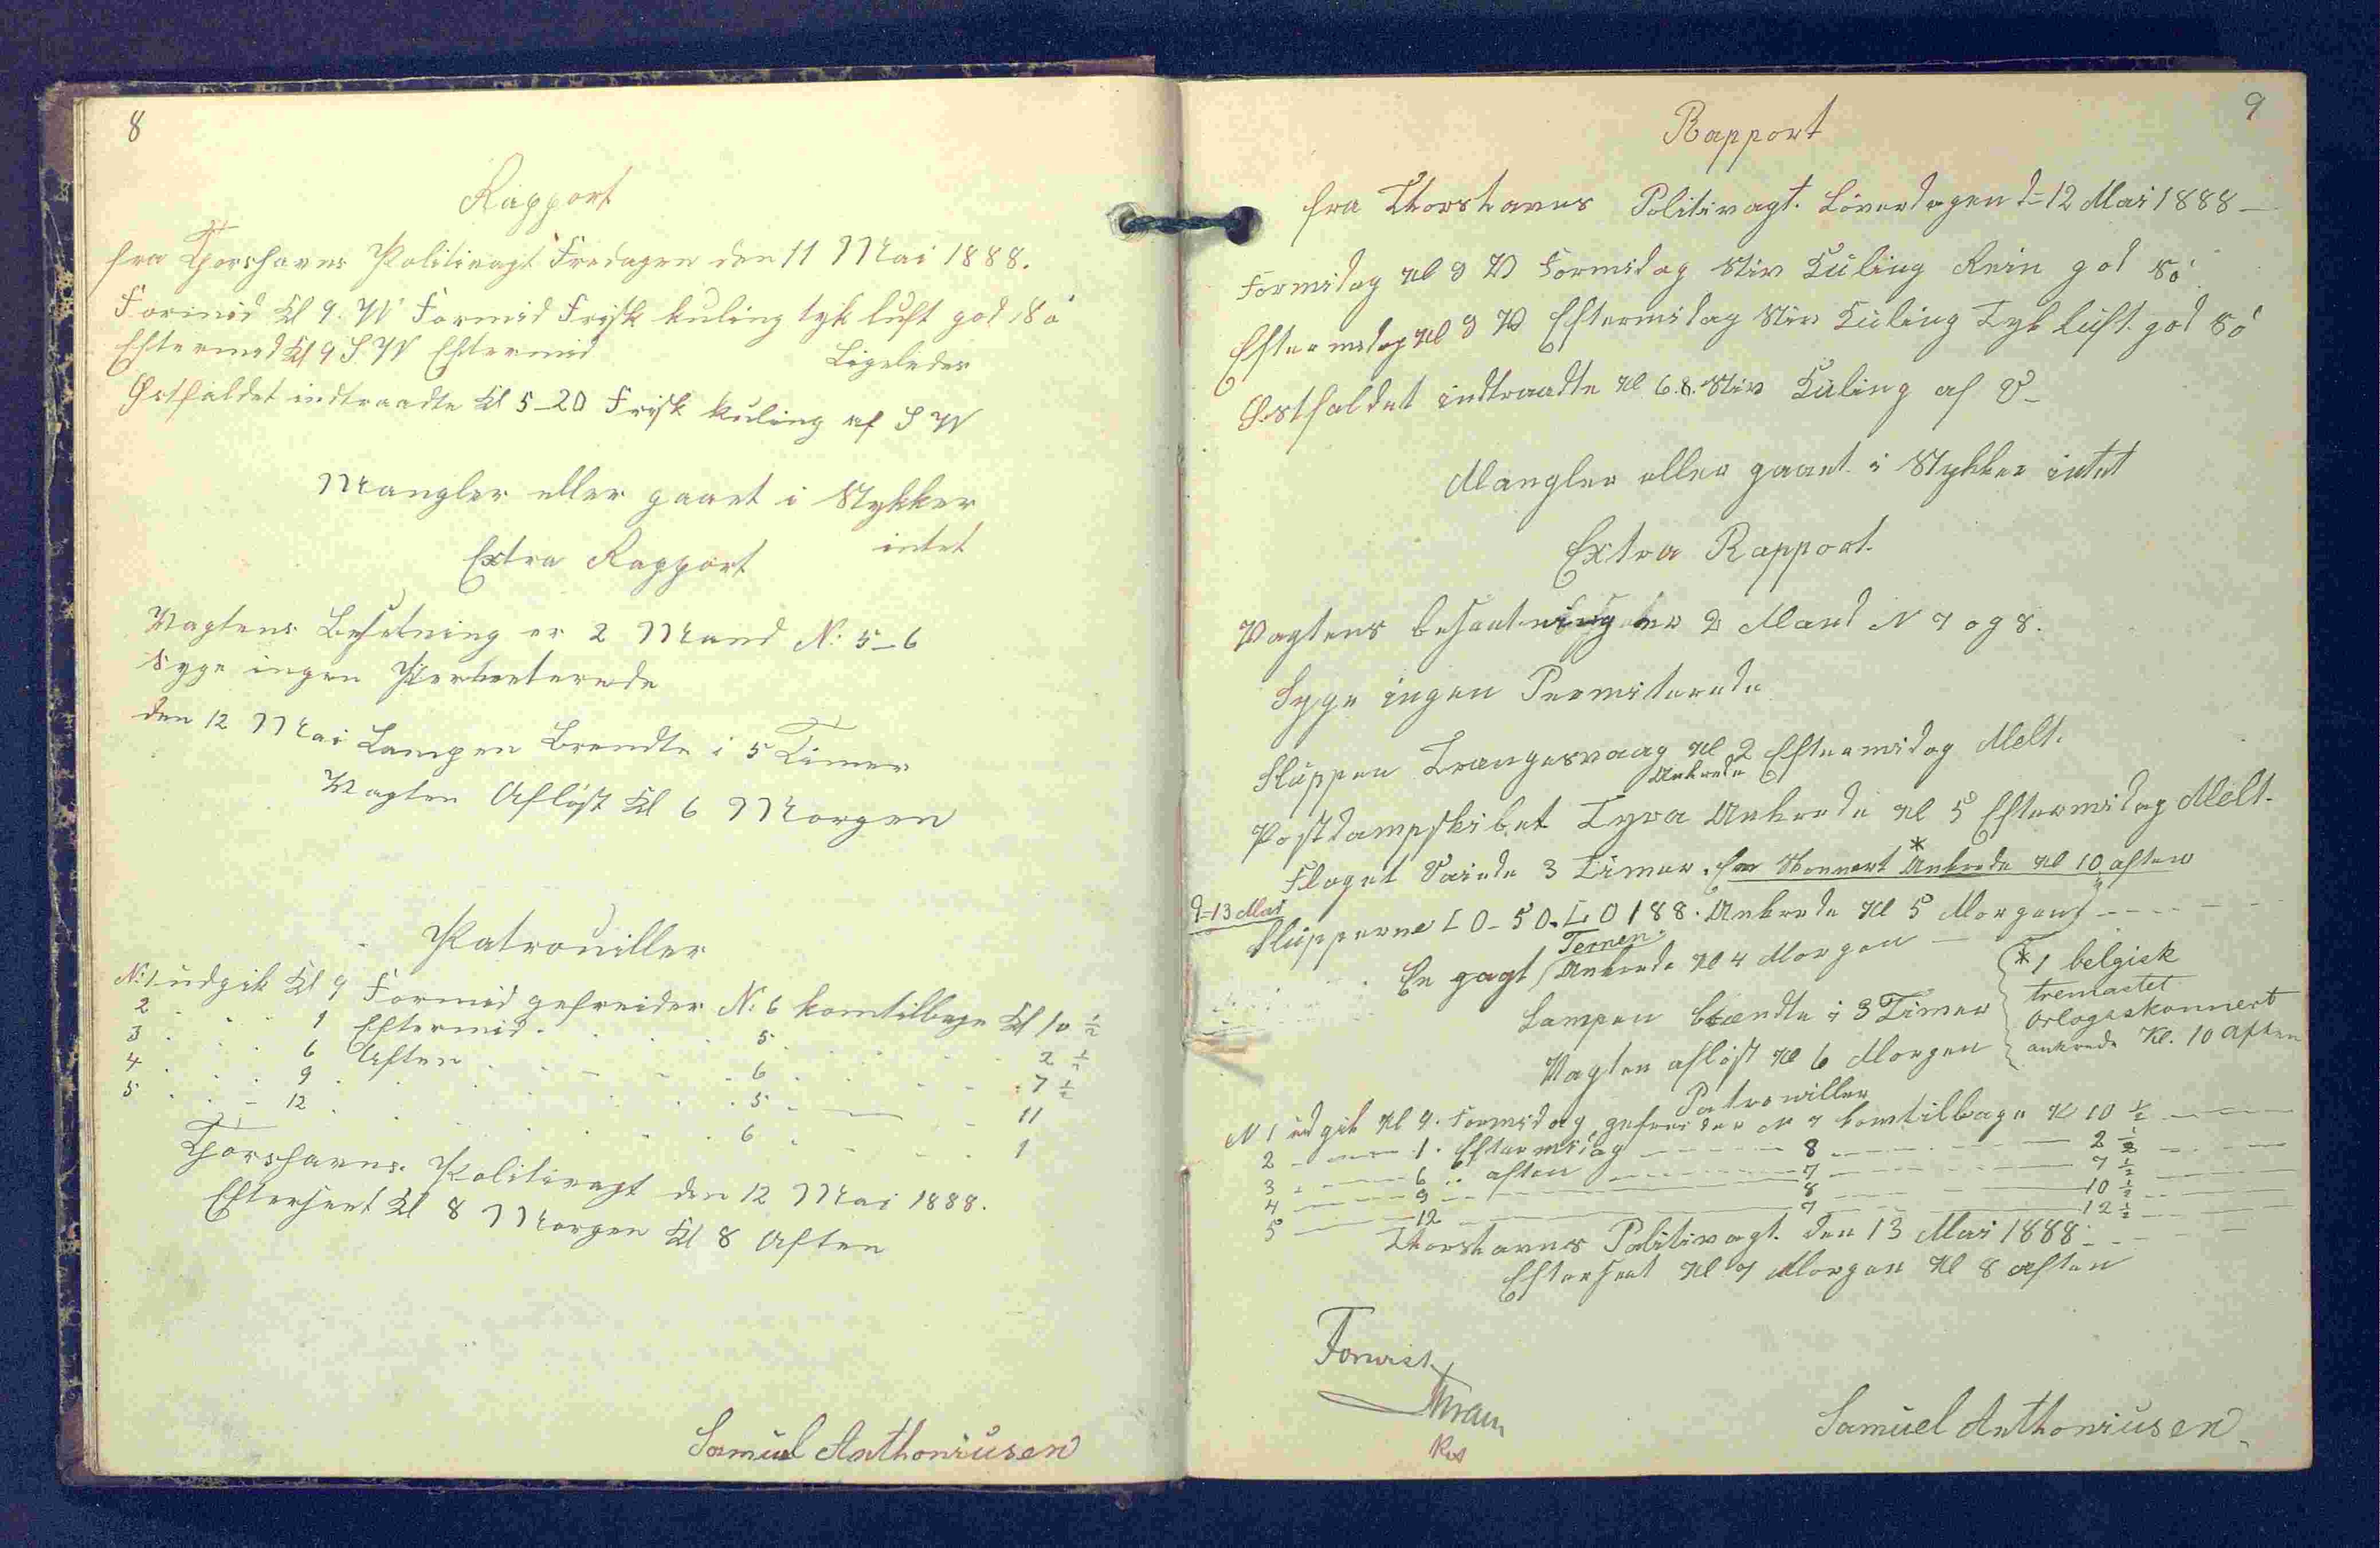 8
Rapport
fra Thorshavns Politivagt Fredagen den 11 Mai 1888.
Formid Kl 9. W Formid Frisk kuling tyk luft god Sö
Eftermed Kl 9 S. W Eftermid Ligeledes
Østfaldet indtraadte Kl 5-20 Frisk kuling af S W
Mangler eller gaaet i Stykker
intet
Extra Rapport
Vagtens Besetning er 2 Mand N: 5-6
Syge ingen
den 12 Mai Lampen Brendte i 5 Timer
Vagten Afløst Kl 6 Morgen
Patrouiller
N: 1 udgik Kl 9 Formid gefreider N: 6 kom tilbage Kl 10 ½
2 . . . 1 Eftermid . . . 5 . . . 2 ½
3 . . . 6 Aften . . . 6 . . . 7 ½
4 . . . 9 . . . 5 . . . 11
5 . . . 12 . . . 6 . . . 1
Thorshavns Politivagt den 12 Mai 1888.
Efterseet Kl 8 Morgen Kl 8 Aften
Samuel Anthoniusen
9
Rapport
fra Thorshavns Politivagt. Löverdagen d= 12 Mai 1888 –
Formidag Kl 9 V Formidag Stiv Kuling Rein god Sö
Eftermidag Kl 9 V Eftermidag Stiv Kuling Tyk luft. god Sö
Østfaldet indtraadte Kl 6.8. Stiv Kuling af V –
Mangler eller gaaet i Stykker intet
Extra Rapport.
Vagtens besaetning er 2 Mand N 7 og 8.
Syge ingen Permiterede
Sluppen Trangesvaag Kl 2 Eftermidag Melt.
Ankrede
Postdampskibet Tyra Ankrede Kl 5 Eftermidag Melt.
Flaget Vaiede 3 Timer. En Skonnert * Ankrede Kl 10 aften
d=13 Mai
Slupperne L O - 50. L O 188. Ankrede Kl 5 Morgen
Ternen.
En Jagt Ankrede Kl 4 Morgen –
* 1 belgisk
tremastet
Orlogsskonnert
ankrede Kl. 10 Aften
Lampen brændte i 3 Timer
Vagten afløst Kl 6 Morgen
Patrowiller
N 1 udgik Kl 9. Formidag gefreider N 7 kom tilbage Kl 10 ½
2 – – 1. Eftermidag – – 8 – – 2 ½
3 – – 6 .. aften – – 7 – – 7 ½
4 – – 9 – – 8 – – 10 ½
5 – – 12 – – 7 – – 12 ½
Thorshavns Politivagt. den 13 Mai 1888.
Efterseet Kl 7 Morgen Kl 8 aften
Forevist
Samuel Anthoniusen